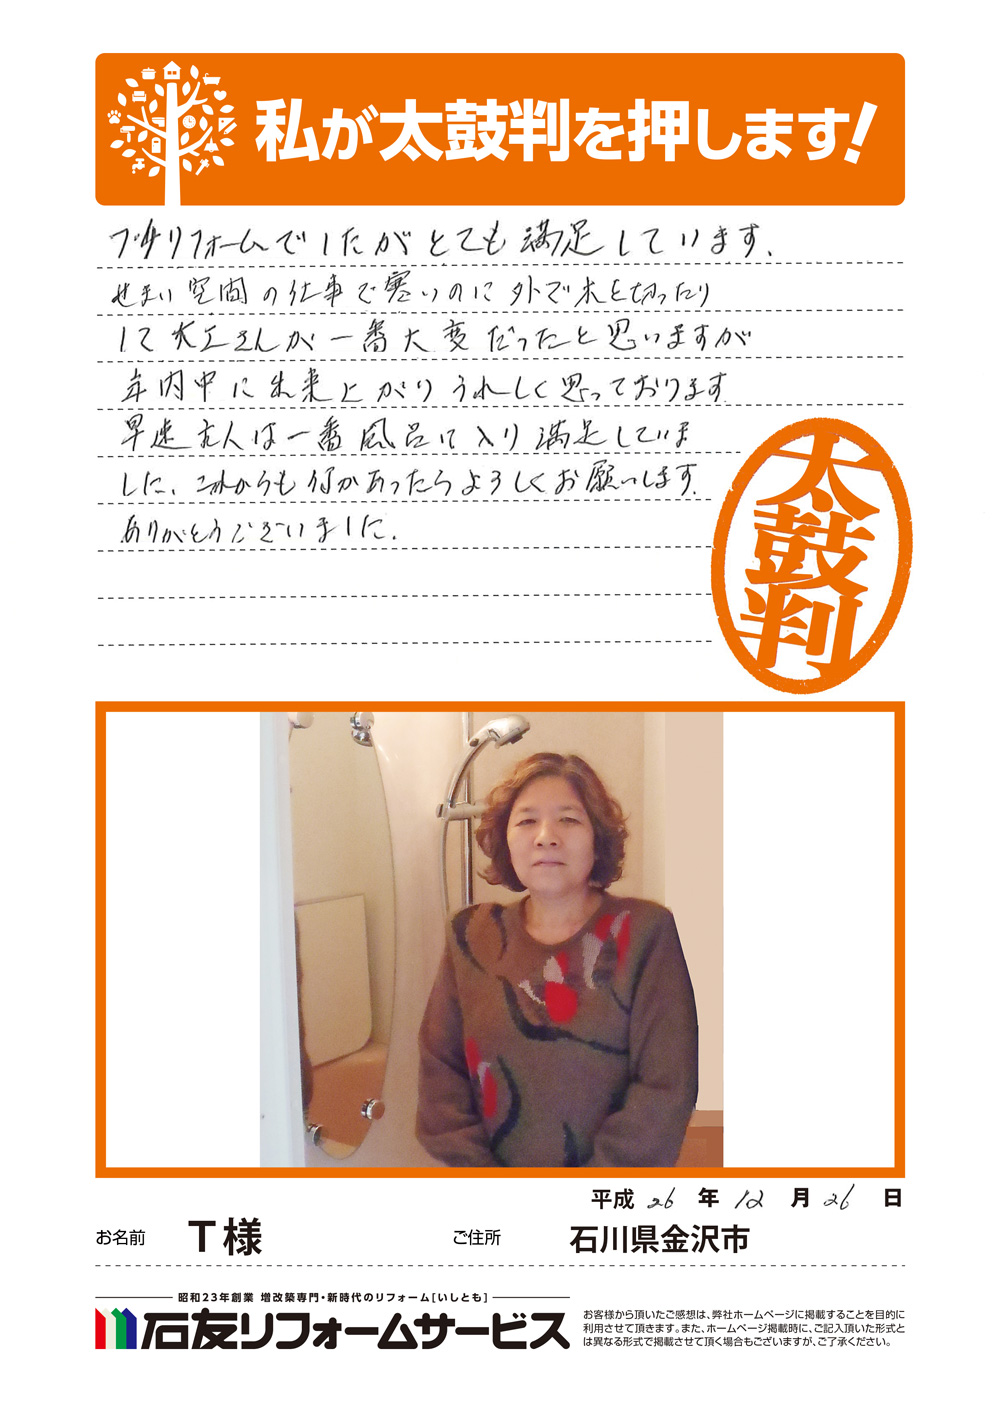 私が太鼓判を押します!
プチリフォームでしたがとても満足しています.
せまい空間の仕事で寒いのに外で木を切ったり
して大工さんが一番大変だったと思いますが
年内中に出来上がりうれしく思っております
早速主人は一番風呂に入り満足していま
した、これからも何かあったらよろしくお願いします.
ありがとうございました.
太鼓判
平成 26 年 12 月 26 日
お名前 T様 ご住所 石川県金沢市
昭和23年創業 増改築専門・新時代のリフォーム[いしとも]
石友リフォームサービス
お客様から頂いたご感想は、弊社ホームページに掲載することを目的に
利用させて頂きます。また、ホームページ掲載時に、ご記入頂いた形式と
は異なる形式で掲載させて頂く場合もございますが、ご了承ください。